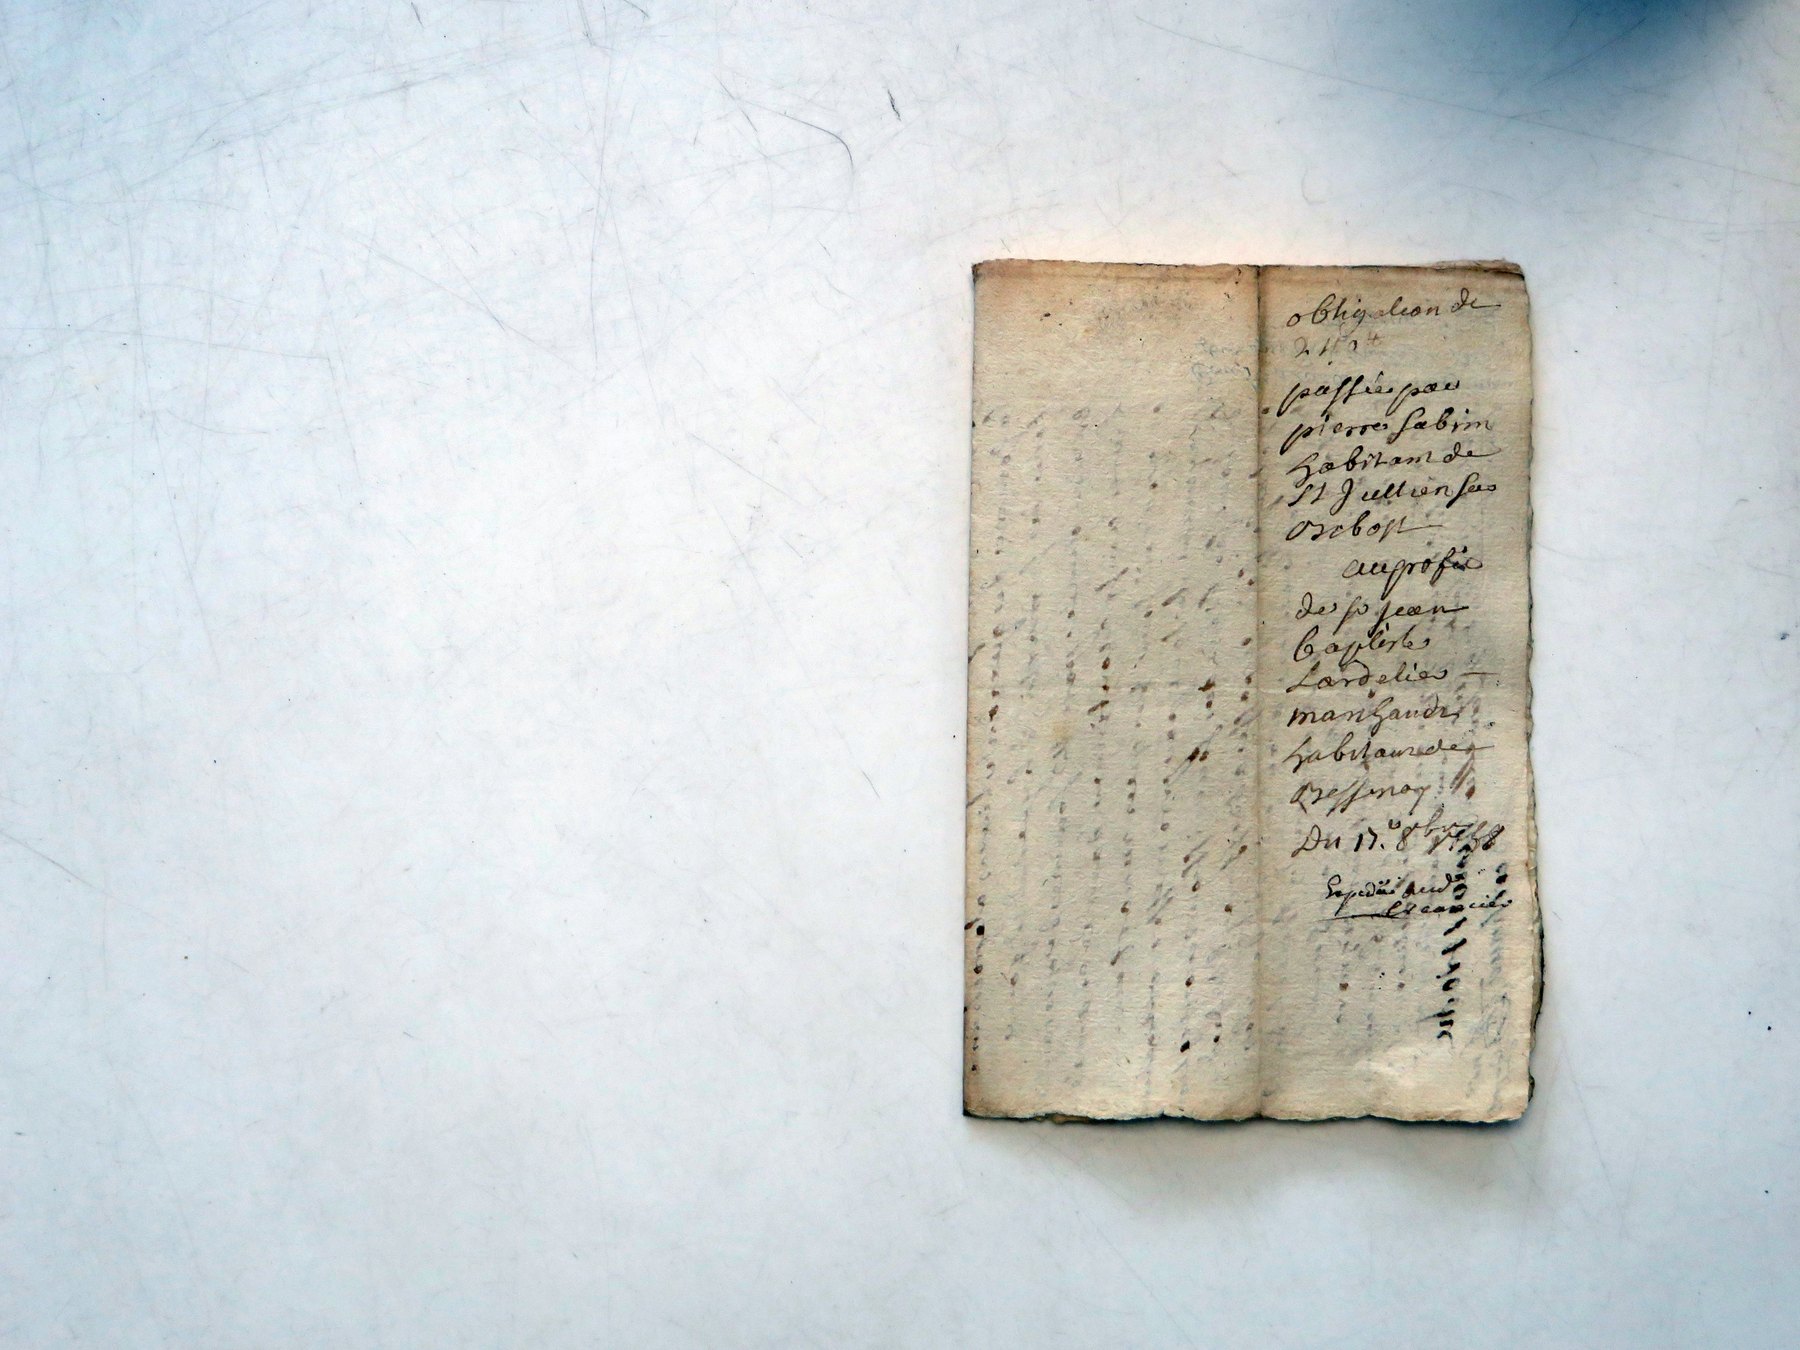 obligation de
240 ₶
passée par
pierre Sabrin
habitant de
St Jullien sur
Bibost
au profit
de sr jean
baptiste
Lardelier
marchand
habitant de
Bessenay
Du 17e 8bre
Expedié aud
Creancier